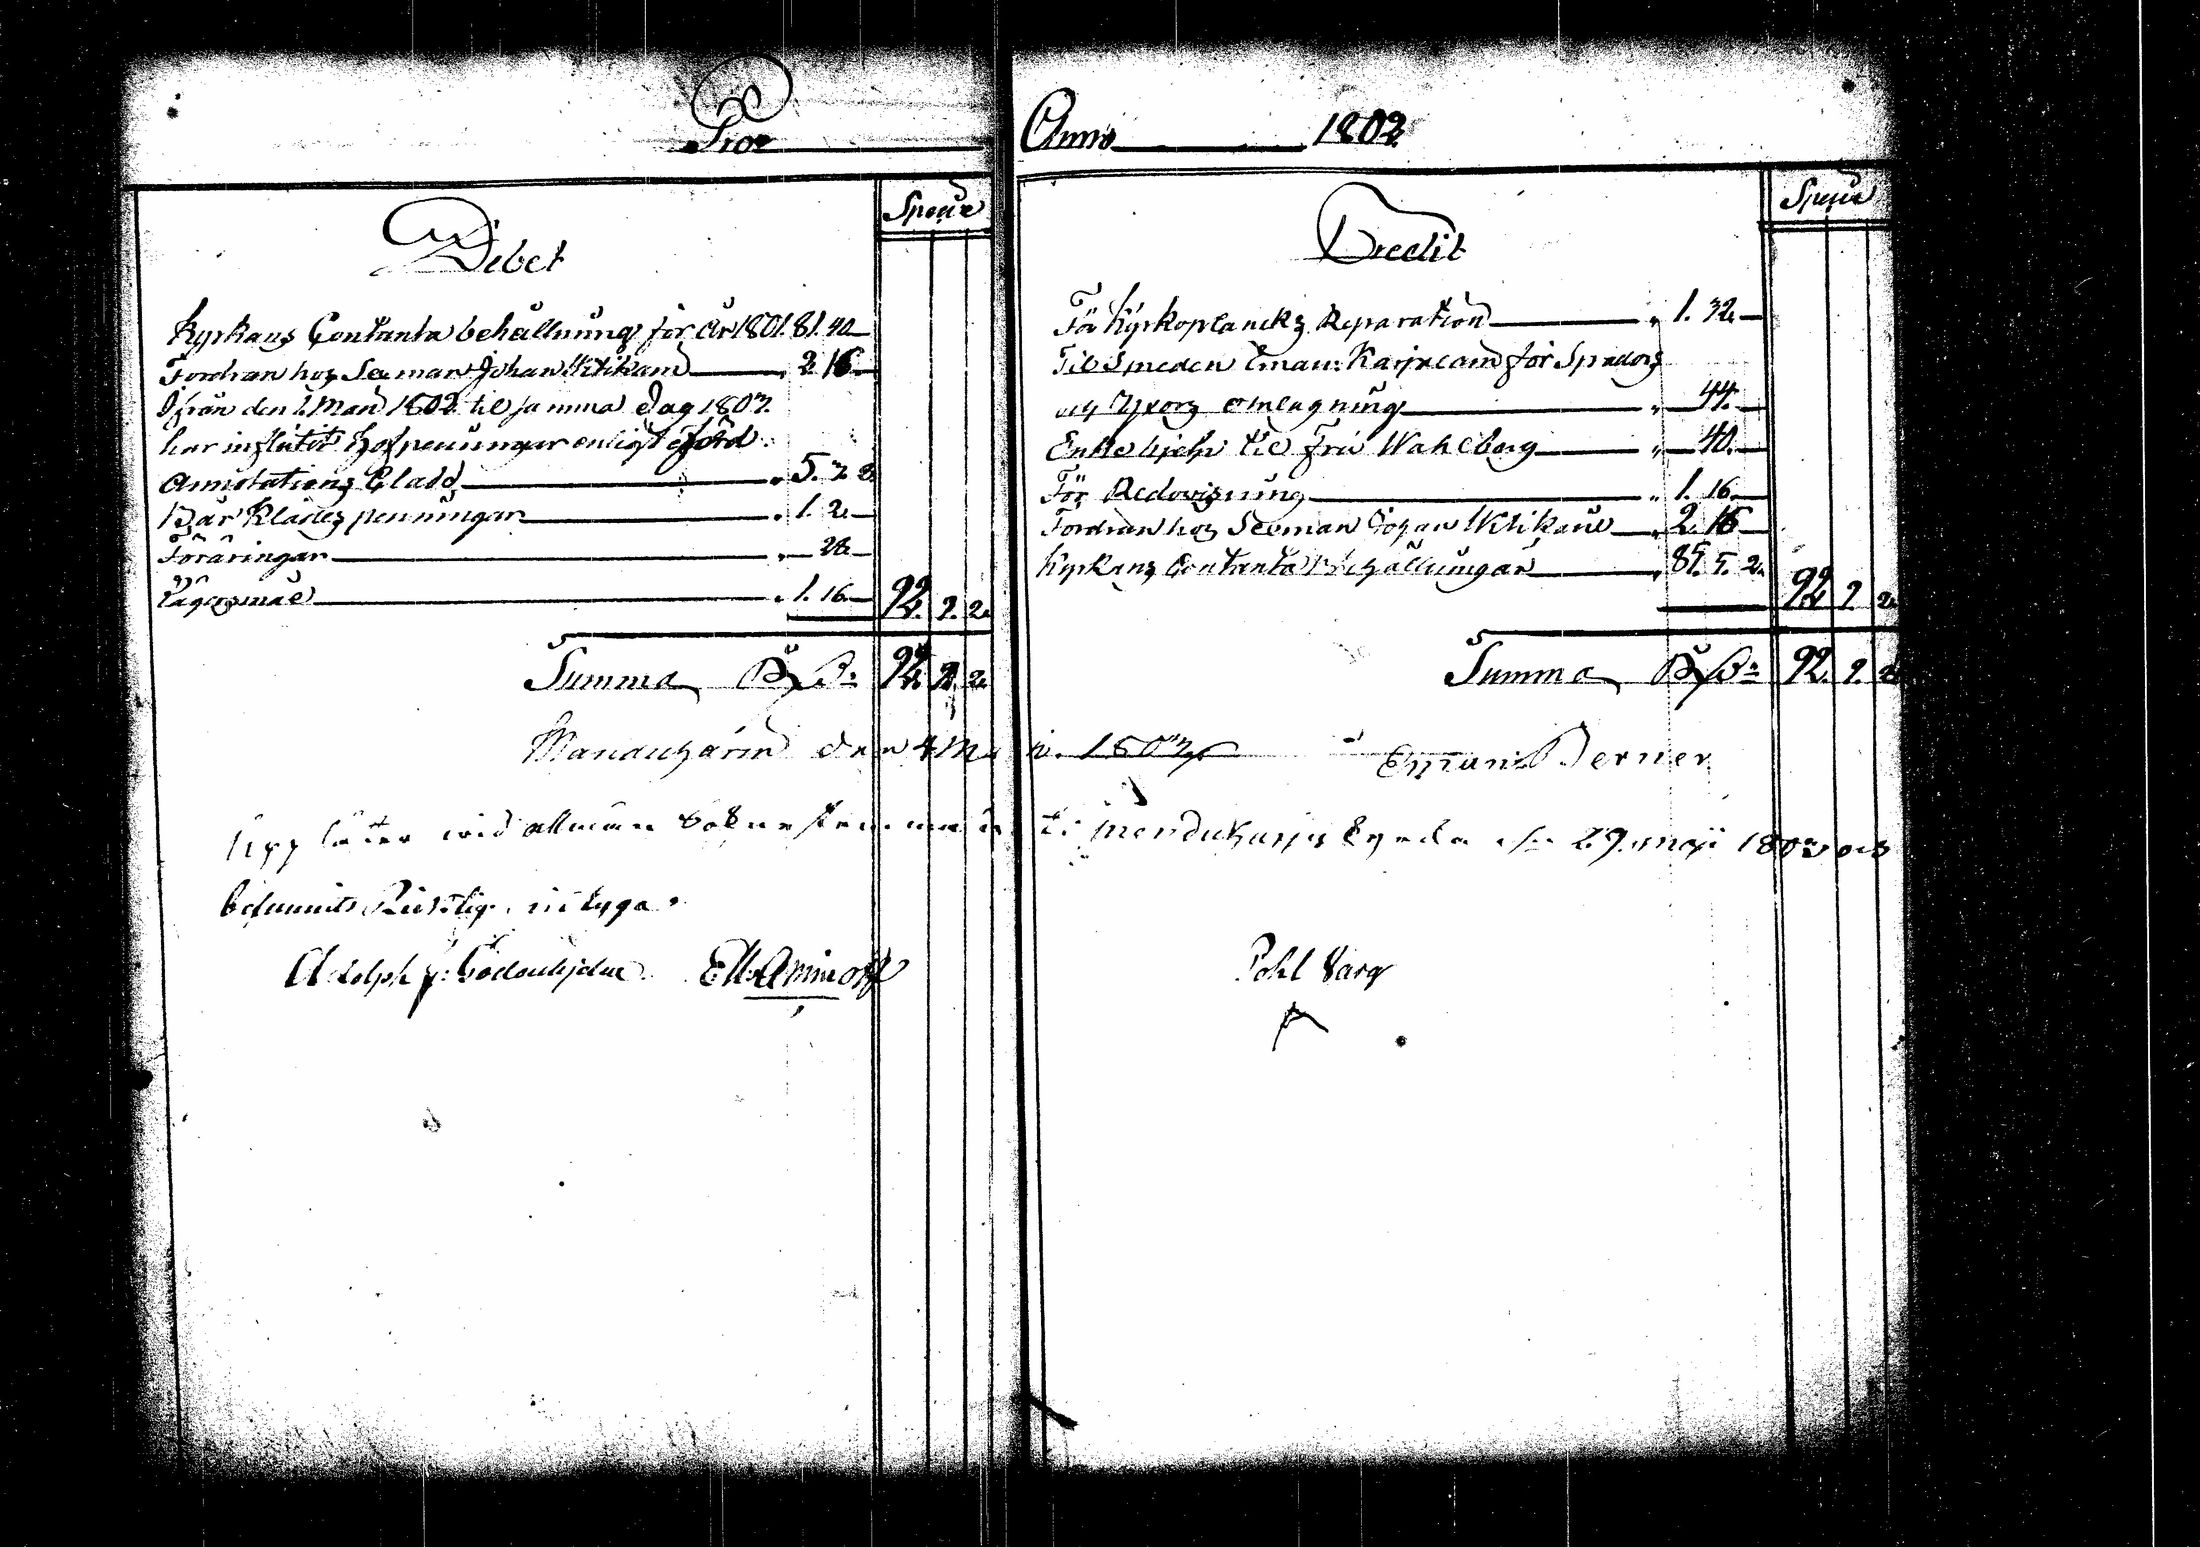 Pro Anno 1802
Debet
Specie
Kyrkans Contanta behållning för år 1801. 81. 40
Fordran hos Seeman Johan Ukikain 2. 16
Ifrån den 1. Maii 1802. til samma dag 1803.
har influtit Hofpeningar enligt
Annotations Blad 5. 2. 2.
Bår Klädes penningar 1. 2.
Föräringar 22
Tägersmåe 1. 16. 92. 9. 2.
Summa 92. 9. 2.
Credit
Specie
För Kyrkoplanckz Reparation 1. 32
Til Smeden Eman: Karjalain för Spadors
och Yxors omlagning 44.
Enke hjelp til Fru Wahlberg 40.
För Redovisning 1. 16.
Fordran hos Seeman Johan Ukikain 2. 16
Kyrkans Contanta Behållningar 85. 5. 2. 92. 9. 2.
Summa 92. 9. 2.
den 4 Maii 1803 Eman: Berner
Upp läter wid allmän Sokne stemma i Mendukarju Kyrka den 29 Maji 1803 och
befunnits Richtig intyga
Adolph J: Cedouhjelm Aminoff Pohl Varg